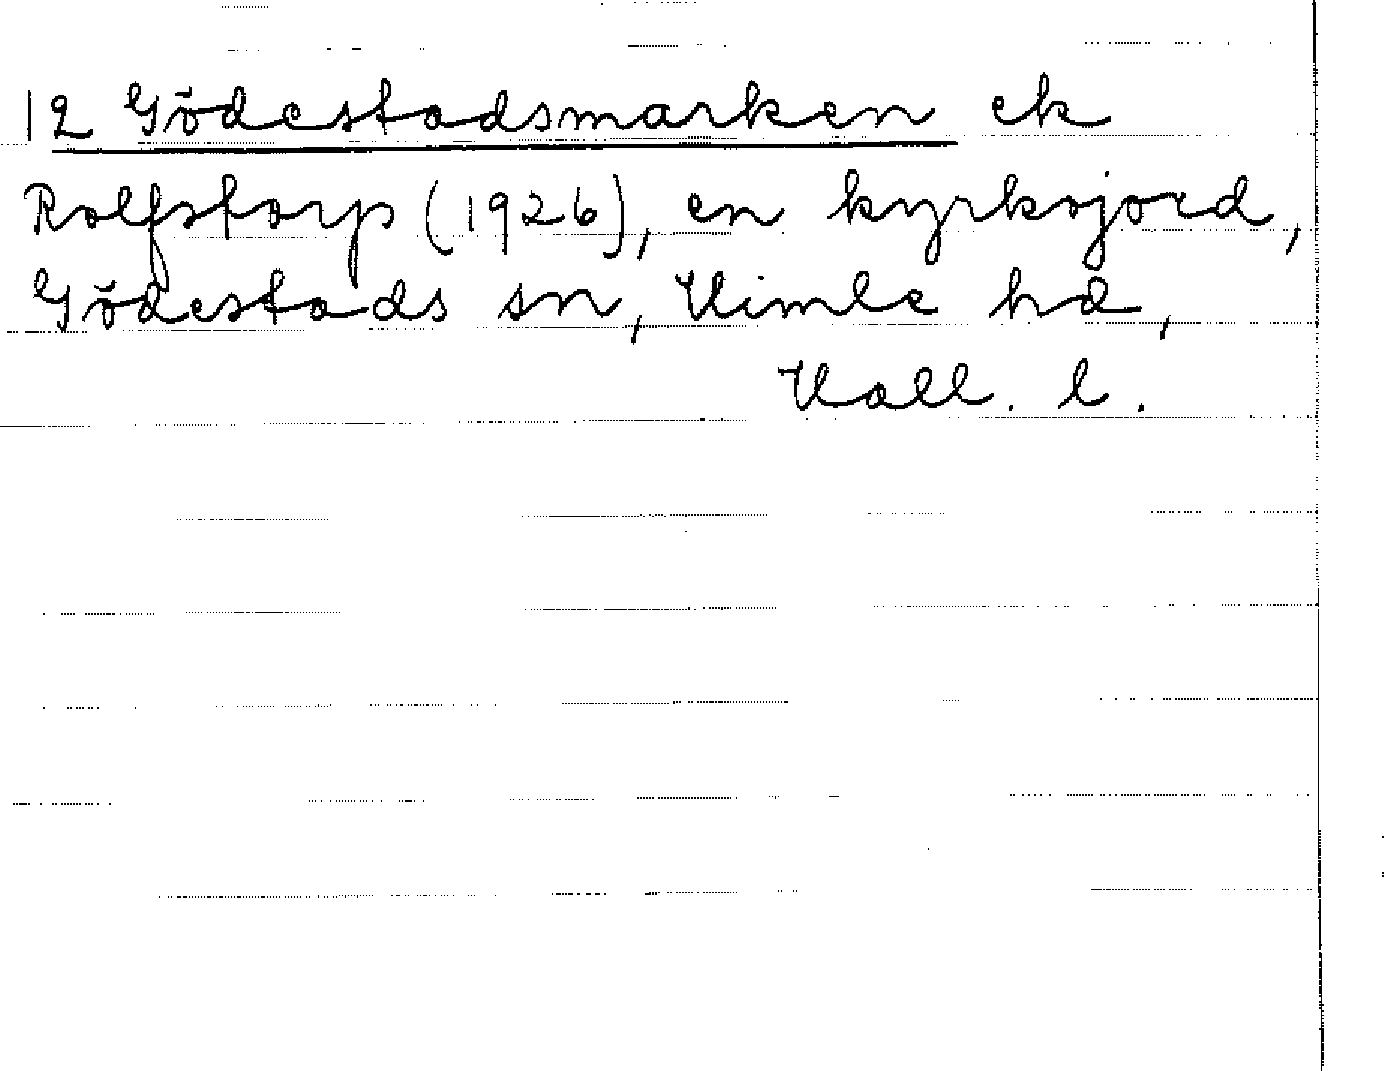 12 Gödestadsmarken ek
Rolfstorp (1926), en kyrksjord,
Gödestads sn, Himle hd,
Hall. l.